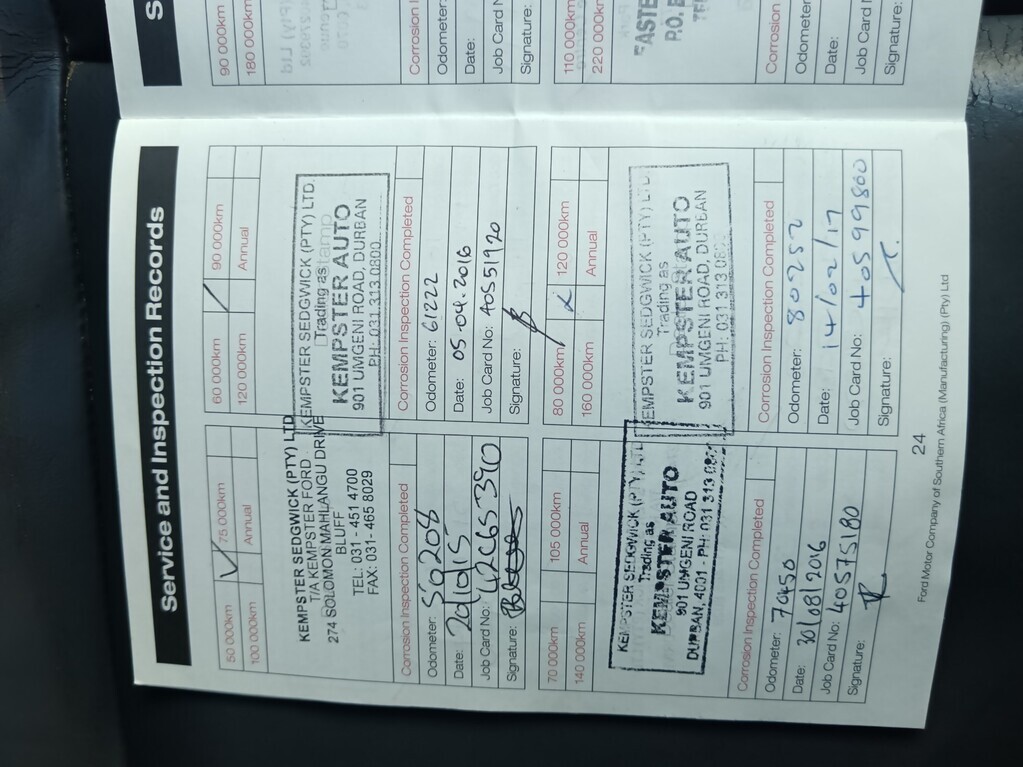 Service and Inspection Records
50 000km 75 000km
100 000km Annual
KEMPSTER SEDGWICK (PTY) LTD
T/A KEMPSTER FORD
274 SOLOMON MAHLANGU DRIVE
BLUFF
TEL: 031 - 451 4700
FAX: 031- 465 8029
Corrosion Inspection Completed
Odometer: 56208
Date: 20/10/15
Job Card No: 42C65390
Signature:
60 000km 90 000km
120 000km Annual
KEMPSTER SEDGWICK (PTY) LTD.
Trading as
KEMPSTER AUTO
901 UMGENI ROAD, DURBAN
PH: 031 313 0800
Corrosion Inspection Completed
Odometer: 61222
Date: 05-04.2016
Job Card No: 40551920
Signature:
70 000km 105 000km
140 000km Annual
KEMPSTER SEDGWICK (PTY) LTD
Trading as
KEMPSTER AUTO
901 UMGENI ROAD
DURBAN, 4001 - PH: 031 313 080
Corrosion Inspection Completed
Odometer: 70450
Date: 30/08/2016
Job Card No: 40575180
Signature:
80 000km 120 000km
160 000km Annual
KEMPSTER SEDGWICK (PTY) LTD.
Trading as
KEMPSTER AUTO
901 UMGENI ROAD, DURBAN
PH: 031 313 080
Corrosion Inspection Completed
Odometer: 80252
Date: 14/02/17
Job Card No: 40599800
Signature:
24
Ford Motor Company of Southern Africa (Manufacturing) (Pty) Ltd
S
90 000km
180 000km
Corrosion I
Odometer:
Date:
Job Card N
Signature:
110 000km
220 000km
EASTE
P.O. B
Corrosion
Odometer:
Date:
Job Card N
Signature: